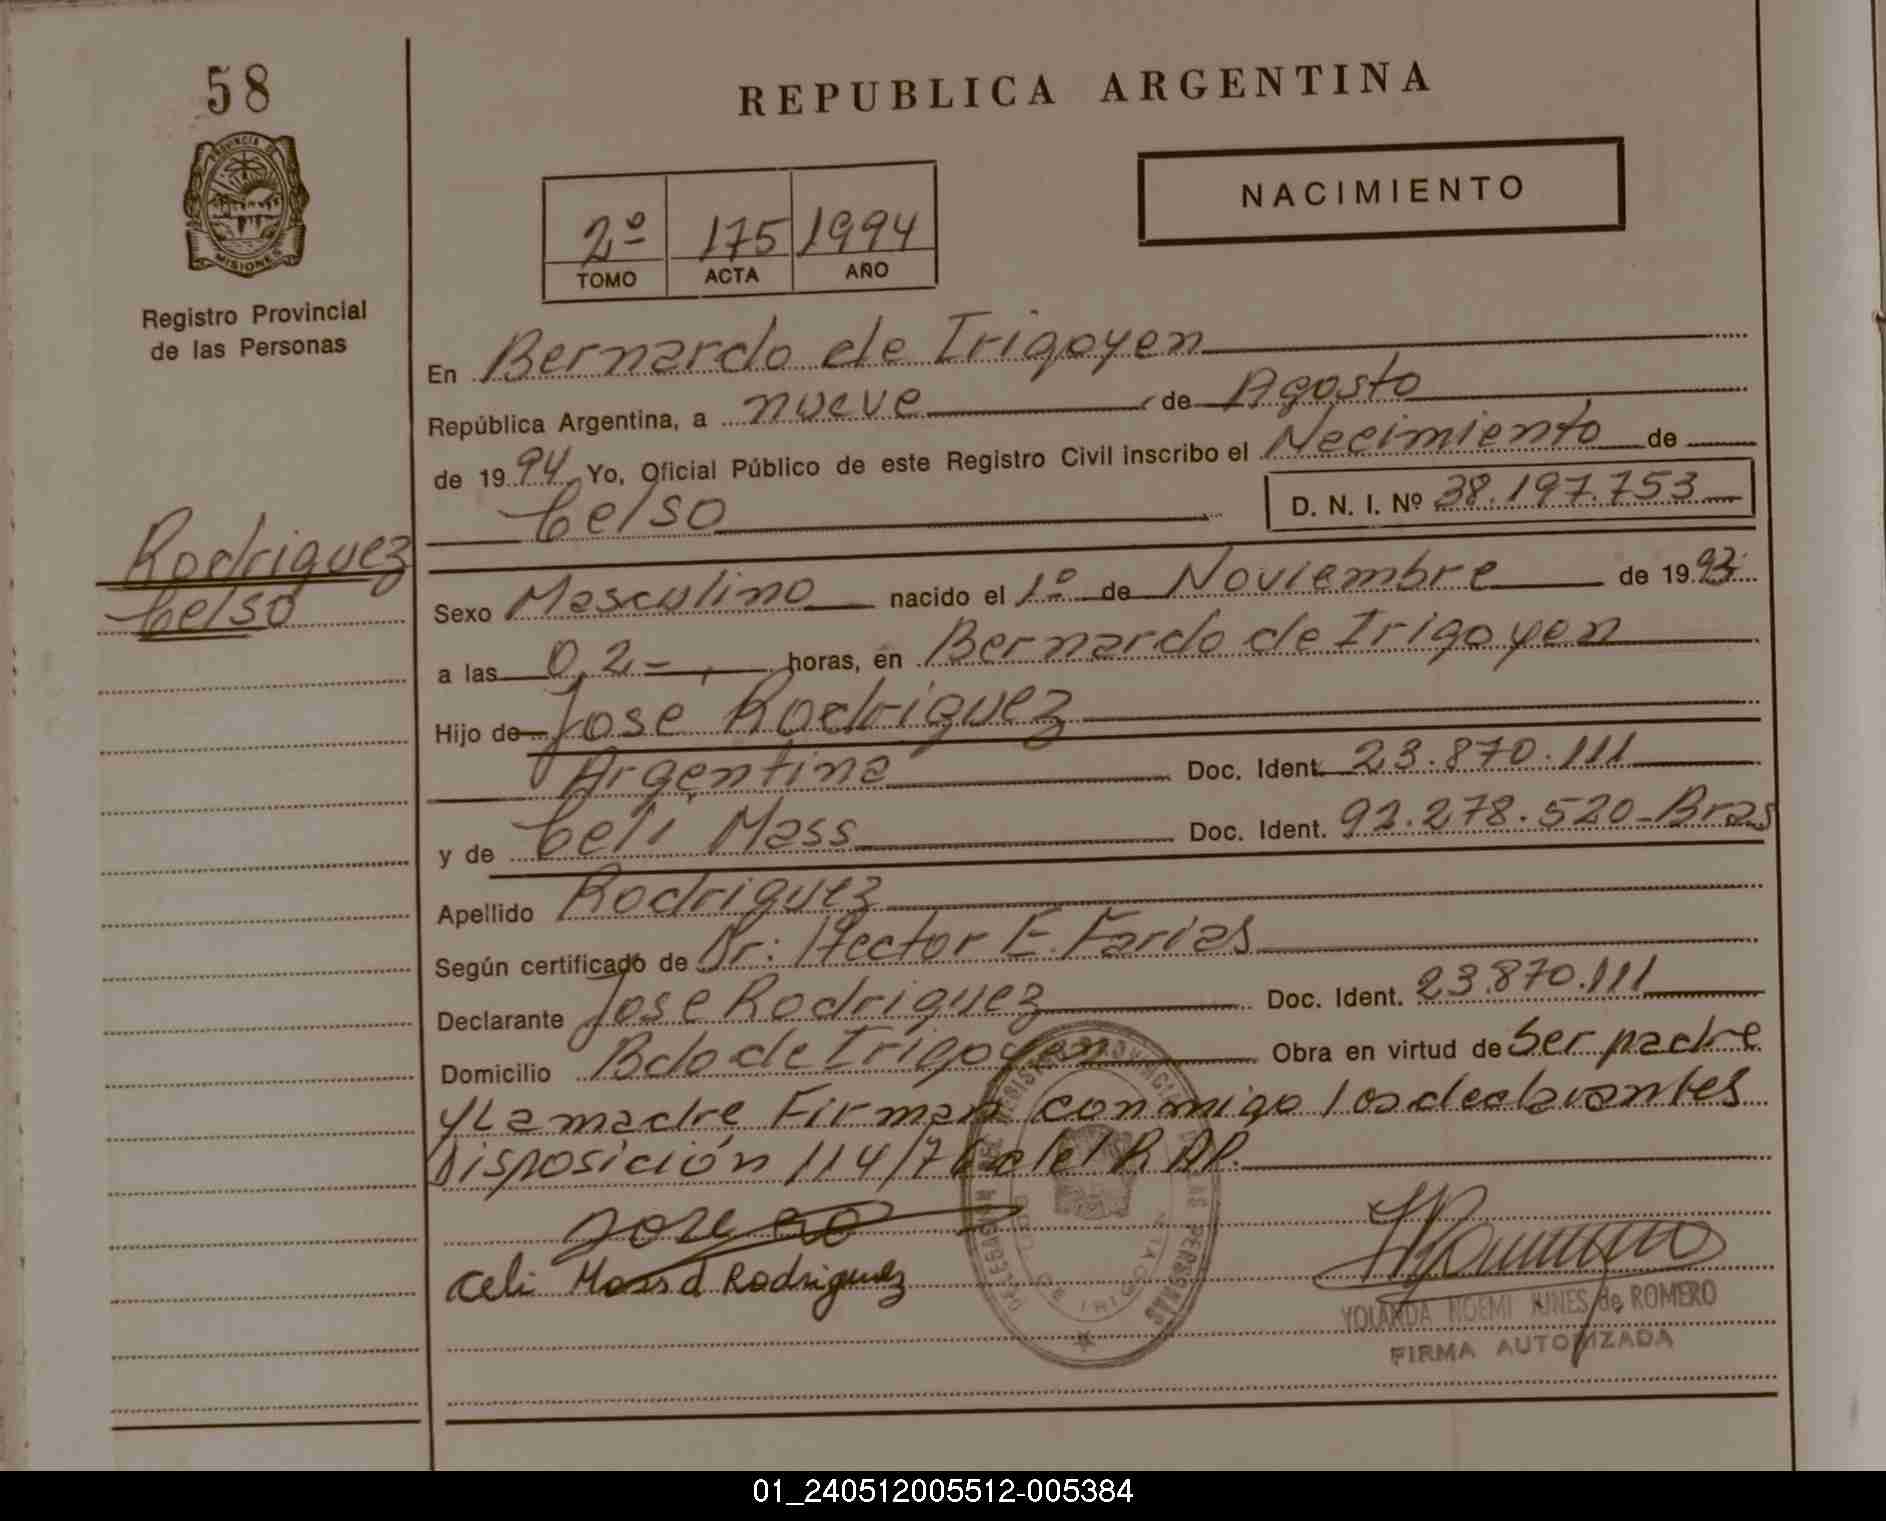 58
PROVINCIA DE
MISIONES
Registro Provincial
de las Personas
REPUBLICA ARGENTINA
NACIMIENTO
2º 175 1994
TOMO ACTA AÑO
En Bernardo de Irigoyen
República Argentina, a nueve de Agosto
de 1994 Yo, Oficial Público de este Registro Civil inscribo el Necimiento de
Celso D. N. I. Nº 38.197.753
Rodriguez
Celso
Sexo Masculino nacido el 1º de Noviembre de 1993
a las 02- horas, en Bernardo de Irigoyen
Hijo de Jose Rodriguez
Argentina Doc. Ident. 23.870.111
y de Celi Mass Doc. Ident. 92.278.520-Bras
Apellido Rodriguez
Según certificado de Dr: Hector E. Farias
Declarante Jose Rodriguez Doc. Ident. 23.870.111
Domicilio Bdo de Irigoyen Obra en virtud de Ser padre
y La madre Firman conmigo los declarantes
Disposición 114/76 del R.P.P.
Jose
Celi Mass d Rodriguez
YOLANDA NOEMI JUNES de ROMERO
FIRMA AUTORIZADA
01_240512005512-005384